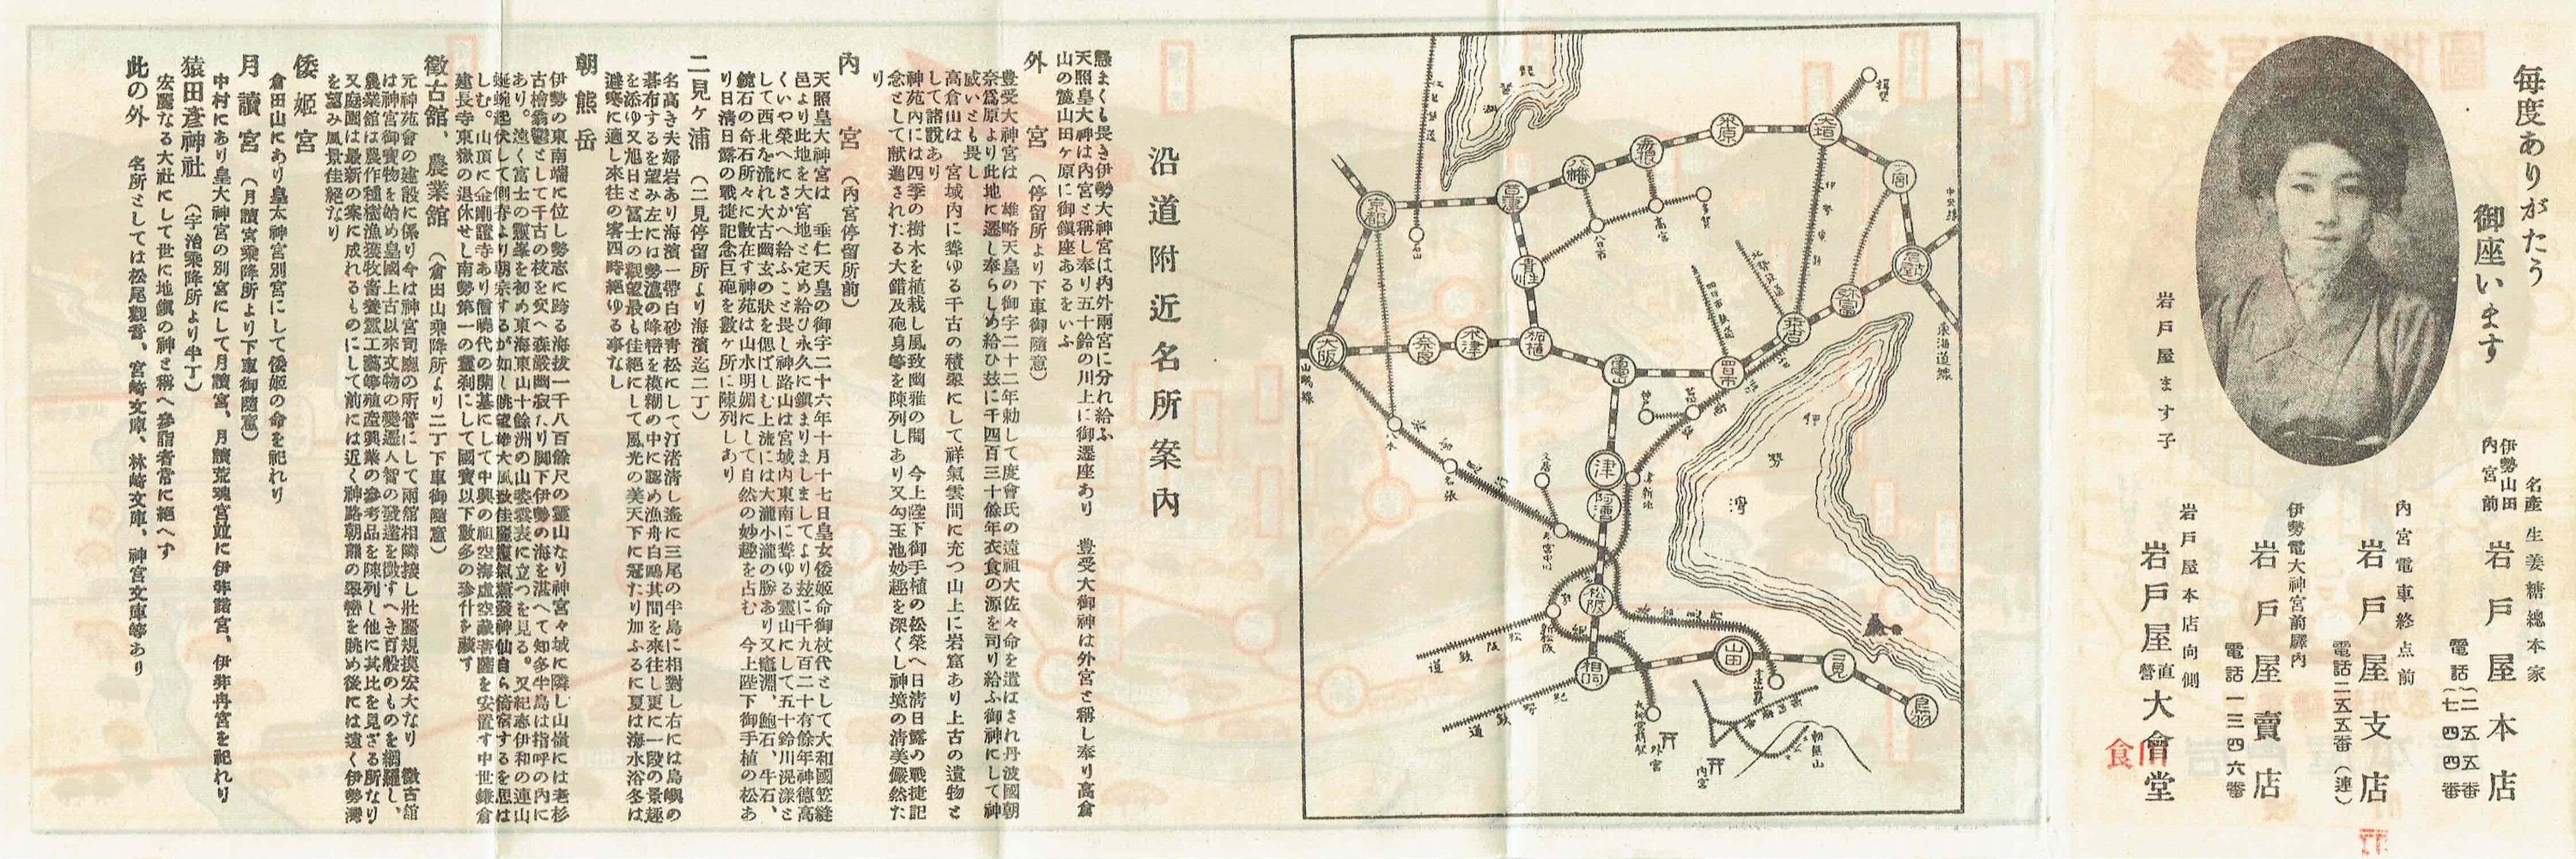 毎度ありがたう
御座います
岩戸屋ます子
名産 生姜糖總本家
伊勢山田
内宮前
岩戸屋本店
電話
二五五番
七四四番
内宮電車終点前
岩戸屋支店
電話二五五番(連)
伊勢電大神宮前驛内
岩戸屋賣店
電話一三四六番
岩戸屋本店向側
岩戸屋直營大食堂
沿道附近名所案内
懸まくも畏き伊勢大神宮は内外兩宮に分れ給ふ
天照皇大神は内宮と稱し奉り五十鈴の川上に御遷座あり 豊受大御神は外宮と稱し奉り高倉
山の麓山田ヶ原に御鎭座あるをいふ
外宮 (停留所より下車御隨意)
豊受大神宮は 雄略天皇の御宇二十二年勅して度會氏の遠祖大佐々命を遣はされ丹波國朝
奈爲原より此地に遷し奉らしめ給ひ玆に千四百三十餘年衣食の源を司り給ふ御神にして神
威いとも畏し
高倉山は 宮域内に聳ゆる千古の積翠にして祥氣雲間に充つ山上に岩窟あり上古の遺物と
して諸說あり
神苑内には四季の樹木を植栽し風致幽雅の間 今上陛下御手植の松榮へ日清日露の戰捷記
念として献進されたる大錨及砲身等を陳列しあり又勾玉池妙趣を深くし神境の清美儼然た
り
内宮 (内宮停留所前)
天照皇大神宮は 垂仁天皇の御宇二十六年十月十七日皇女倭姫命御杖代として大和國笠縫
邑より此地を大宮地と定め給ひ永久に鎭まりましましてより玆に千九百二十有餘年神德高
くいや榮へにさかへ給ふこと畏し神路山は宮域内東南に聳ゆる靈山にして五十鈴川滉漾と
して西北を流れ大古幽玄の狀を偲ばしむ上流には大瀧小瀧の勝あり又竈淵、鮑石、牛石、
鏡石の奇石所々に散在す神苑は山水明媚にして自然の妙趣を占む 今上陛下御手植の松あ
り日清日露の戰捷記念巨砲を數ヶ所に陳列しあり
二見ヶ浦 (二見停留所より海濱迄二丁)
名高き夫婦岩あり海濱一帶白砂青松にして汀渚清し遙に三尾の半島に相對し右には島嶼の
碁布するを望み左には勢濃の峰巒を模糊の中に認め漁舟白鷗其間を來往し更に一段の景趣
を添ゆ又旭日と富士の觀望最も佳絕にして風光の美天下に冠たり加ふるに夏は海水浴冬は
避寒に適し來往の客四時絕ゆる事なし
朝熊岳
伊勢の東南端に位し勢志に跨る海拔一千八百餘尺の靈山なり神宮々域に隣し山嶺には老杉
古檜蓊鬱として千古の枝を交へ森嚴幽寂たり脚下伊勢の海を湛へて知多半島は指呼の内に
あり。遠く富士の靈峯を初め東海東山十餘洲の山姿雲表に立つを見る。又紀赤伊和の連山
蜿蜒起伏して側脊より朝宗するが如し眺望雄大風致佳麗
しむ。山頂に金剛證寺あり僧曉代の開基にして中興の祖空海虛空藏菩薩を安置す中世鎌倉
建長寺東嶽の退休せし南勢第一の靈刹にして國寶以下數多の珍什を藏す
徵古館、農業館 (倉田山乘降所より二丁下車御隨意)
元神苑會の建設に係り今は神宮司廳の所管にして兩館相隣接し壯麗規摸宏大なり 徵古館
は神宮御寶物を始め皇國上古以來文物の變遷人智の發達を徵すへき百般のものを網羅し、
農業館は農作種樹漁獵牧畜養蠶工藝等殖產興業の參考品を陳列し他に其比を見ざる所なり
又庭園は最新の案に成れるものにして前には近く神路朝熊の翠巒を眺め後には遠く伊勢灣
を望み風景佳絕なり
倭姫宮
倉田山にあり皇太神宮別宮にして倭姫の命を祀れり
月讀宮 (月讀宮乘降所より下車御隨意)
中村にあり皇大神宮の別宮にして月讀宮、月讀荒魂宮並に伊弉諾宮、伊弉冉宮を祀れり
猿田彥神社 (宇治乘降所より半丁)
宏麗なる大社にして世に地鎭の神と稱へ參詣者常に絕へす
此の外 名所としては松尾觀音、宮崎文庫、林崎文庫、神宮文庫等あり
琵琶湖
揖斐
大垣
米原
彦根
八幡
草津
京都
石山
多賀
高宮
八日市
貴生川
一宮
名古屋
中央線
東海道線
彌富
桑名
四日市
伊勢電鉄
大阪
山陽線
奈良
木津
柘植
亀山
神戸
津
津新地
阿漕
久居
八木
名張
参宮中川
伊勢湾
松阪
新松阪
松阪鉄道
相可
紀勢鉄道
山田
二見
鳥羽
大神宮前駅
外宮
内宮
朝熊山